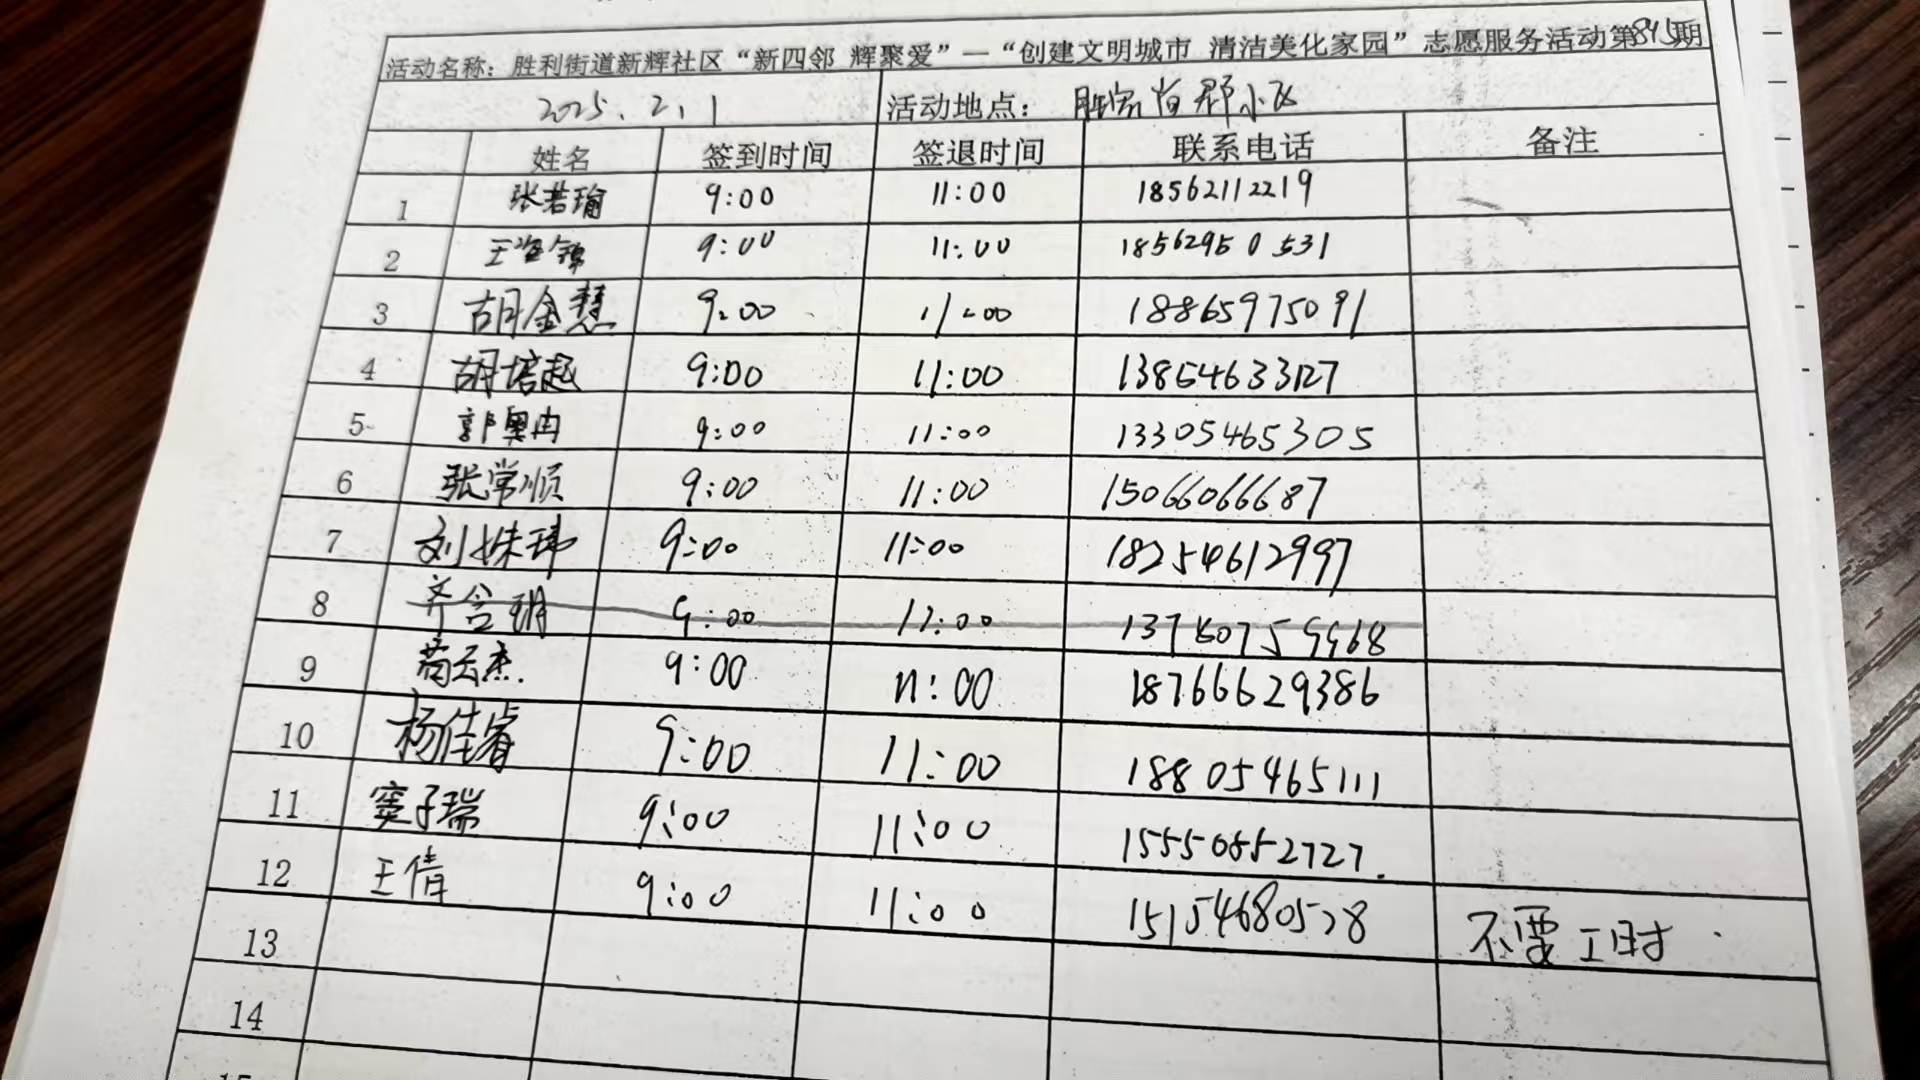 活动名称：胜利街道新辉社区“新四邻 辉聚爱”—“创建文明城市 清洁美化家园”志愿服务活动第845期
2025.2.1 活动地点：胜宏首郡小区
姓名 签到时间 签退时间 联系电话 备注
1 张若瑜 9:00 11:00 18562112219
2 王 9:00 11:00 18562950531
3 胡金慧 9:00 11:00 18865975091
4 胡培起 9:00 11:00 13854633127
5 郭奥冉 9:00 11:00 13305465305
6 张常顺 9:00 11:00 15066066687
7 刘姝玮 9:00 11:00 18254612997
8 齐含玥 9:00 11:00
9 苟云杰 9:00 11:00 18766629386
10 杨佳睿 9:00 11:00 18805465111
11 窦子瑞 9:00 11:00 15550552727.
12 王倩 9:00 11:00 15154680578 不要工时
13
14
15